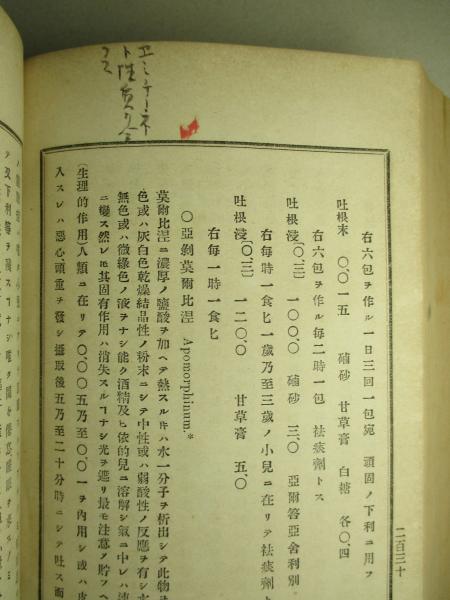 二百三十
右六包ヲ作ル一日三回一包宛 頑固ノ下利ニ用フ
吐根末 〇、〇一五 硇砂 甘草膏 白糖 各〇、四
右六包ヲ作ル毎二時一包 祛痰劑トス
吐根浸(〇、三) 一〇〇、〇 硇砂 三、〇 亞爾答亞舍利別
右毎時一食匕一歲乃至三歲ノ小兒ニ在リテ祛痰劑
吐根浸(〇、三) 一二〇、〇 甘草膏 五、〇
右毎一時一食匕
〇亞剝莫爾比涅 Apomorphinum.*
莫爾比涅ニ濃厚ノ鹽酸ヲ加ヘテ熱スルキハ水一分子ヲ析出シテ此物
色或ハ灰白色乾燥結晶性ノ粉末ニシテ中性或ハ弱酸性ノ反應ヲ有シ
無色或ハ微綠色ノ液ヲナシ能ク酒精及ヒ依的兒ニ溶解シ氣中ニ
ニ變ス然レ𪜈其固有作用ハ消失スルヿナシ光ヲ遮リ最モ注意ノ貯フ
(生理的作用)人類ニ在リテ〇、〇〇五乃至〇、〇一ヲ內用シ或ハ皮
入スレハ惡心、頭重ヲ發シ攝取後五乃至二十分時ニシテ吐ス而
エミチーネ
ト性質